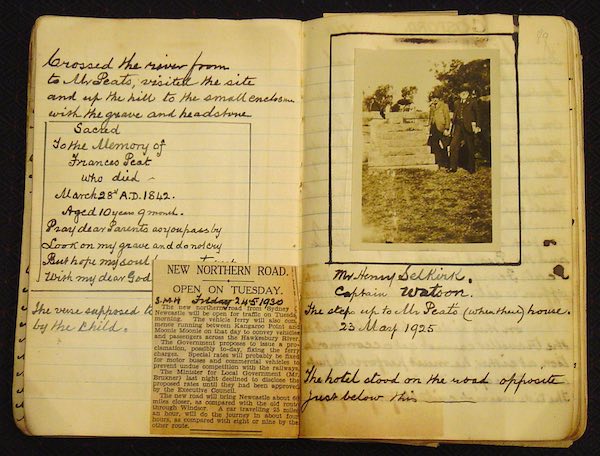 Crossed the river from
to Mr Peats, visited the site
and up the hill to the small enclosure
with the grave and headstone
Sacred
To the Memory of
Frances Peat
who died
March 28th A.D. 1842.
Aged 10 years 9 month.
Pray dear Parents as you pass by
Look on my grave and do not cry
But hope my soul
With my dear God
The verse supposed to
by the Child.
NEW NORTHERN ROAD.
OPEN ON TUESDAY.
S.M.H Friday 1930
The new northern road from Sydney
Newcastle will be open for traffic on Tuesday
morning. The vehicle ferry will also com-
mence running between Kangaroo Point and
Moonie Moonie on that day to convey vehicles
and passengers across the Hawkesbury River.
The Government proposes to issue a pro-
clamation, possibly to-day, fixing the ferry
charges. Special rates will probably be fixed
for motor buses and commercial vehicles to
prevent undue competition with the railways.
The Minister for Local Government (Mr.
Bruxner) last night declined to disclose the
proposed rates until they had been approved
by the Executive Council.
The new road will bring Newcastle about 60
miles closer, as compared with the old route
through Windsor. A car travelling 25 miles
an hour, will do the journey in about four
hours, as compared with eight or nine by the
other route.
99
Mr Henry Selkirk.
Captain Watson.
The step up to Mr Peats (wheelwright) house.
23 May 1925
The hotel stood on the road opposite
just below this